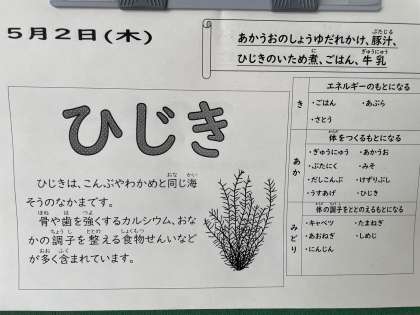 5月2日(木)
あかうおのしょうゆだれかけ、豚汁、
ひじきのいため煮、ごはん、牛乳
ひじき
ひじきは、こんぶやわかめと同じ海
そうのなかまです。
骨や歯を強くするカルシウム、おな
かの調子を整える食物せんいなど
が多く含まれています。
エネルギーのもとになる
き
・ごはん ・あぶら
・さとう
体をつくるもとになる
あか
・ぎゅうにゅう ・あかうお
・ぶたにく ・みそ
・だしこんぶ ・けずりぶし
・うすあげ ・ひじき
体の調子をととのえるもとになる
みどり
・キャベツ ・たまねぎ
・あおねぎ ・しめじ
・にんじん